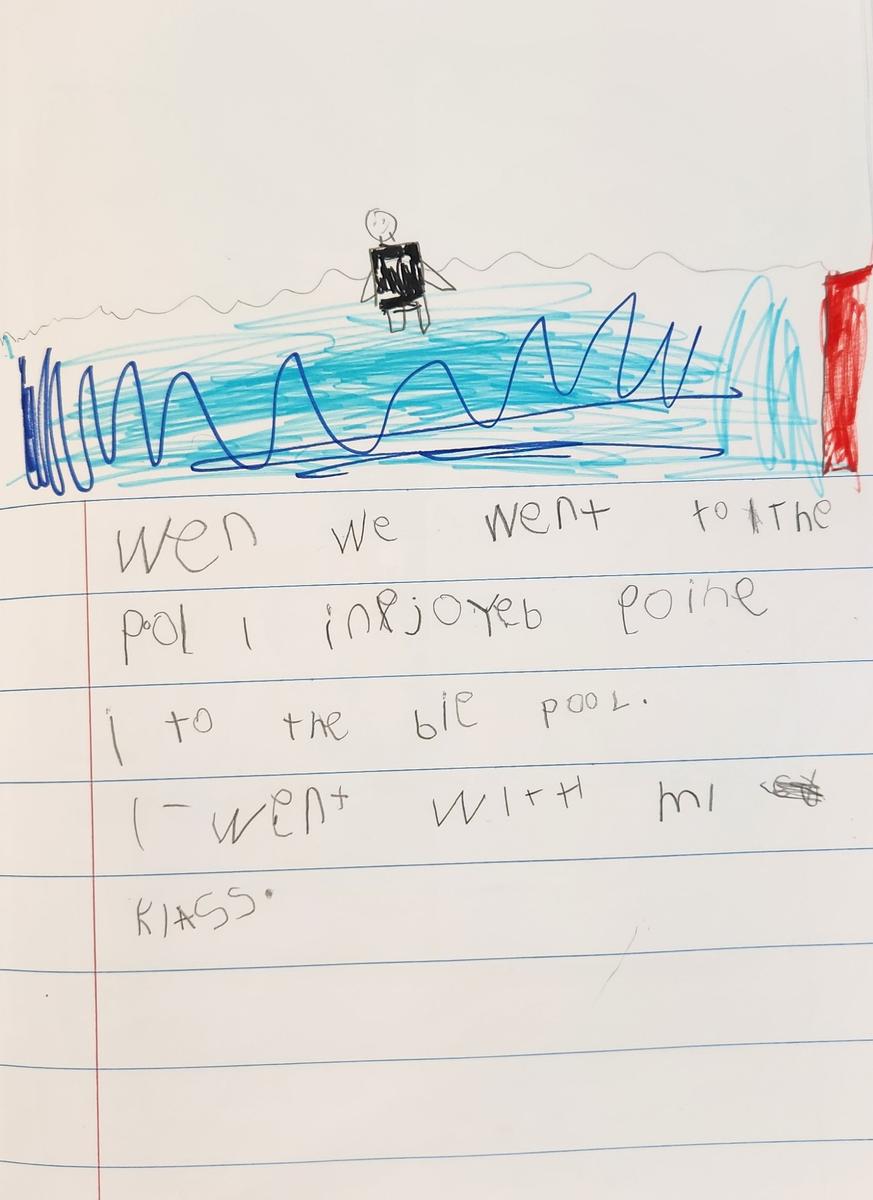 wen we went to the
pool I injoyeb goine
I to the big pool.
I went with mi
klass.